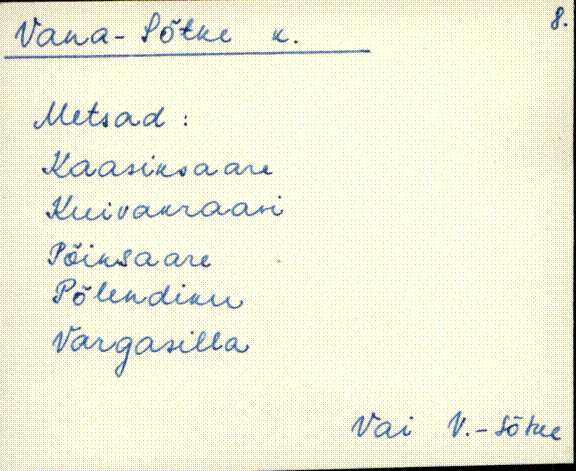 8.
Vana-Sõtke k.
Metsad:
Kaasiksaare
Kuivakraasi
Põiksaare
Põlendiku
Vargasilla
Vai V.-Sõtke